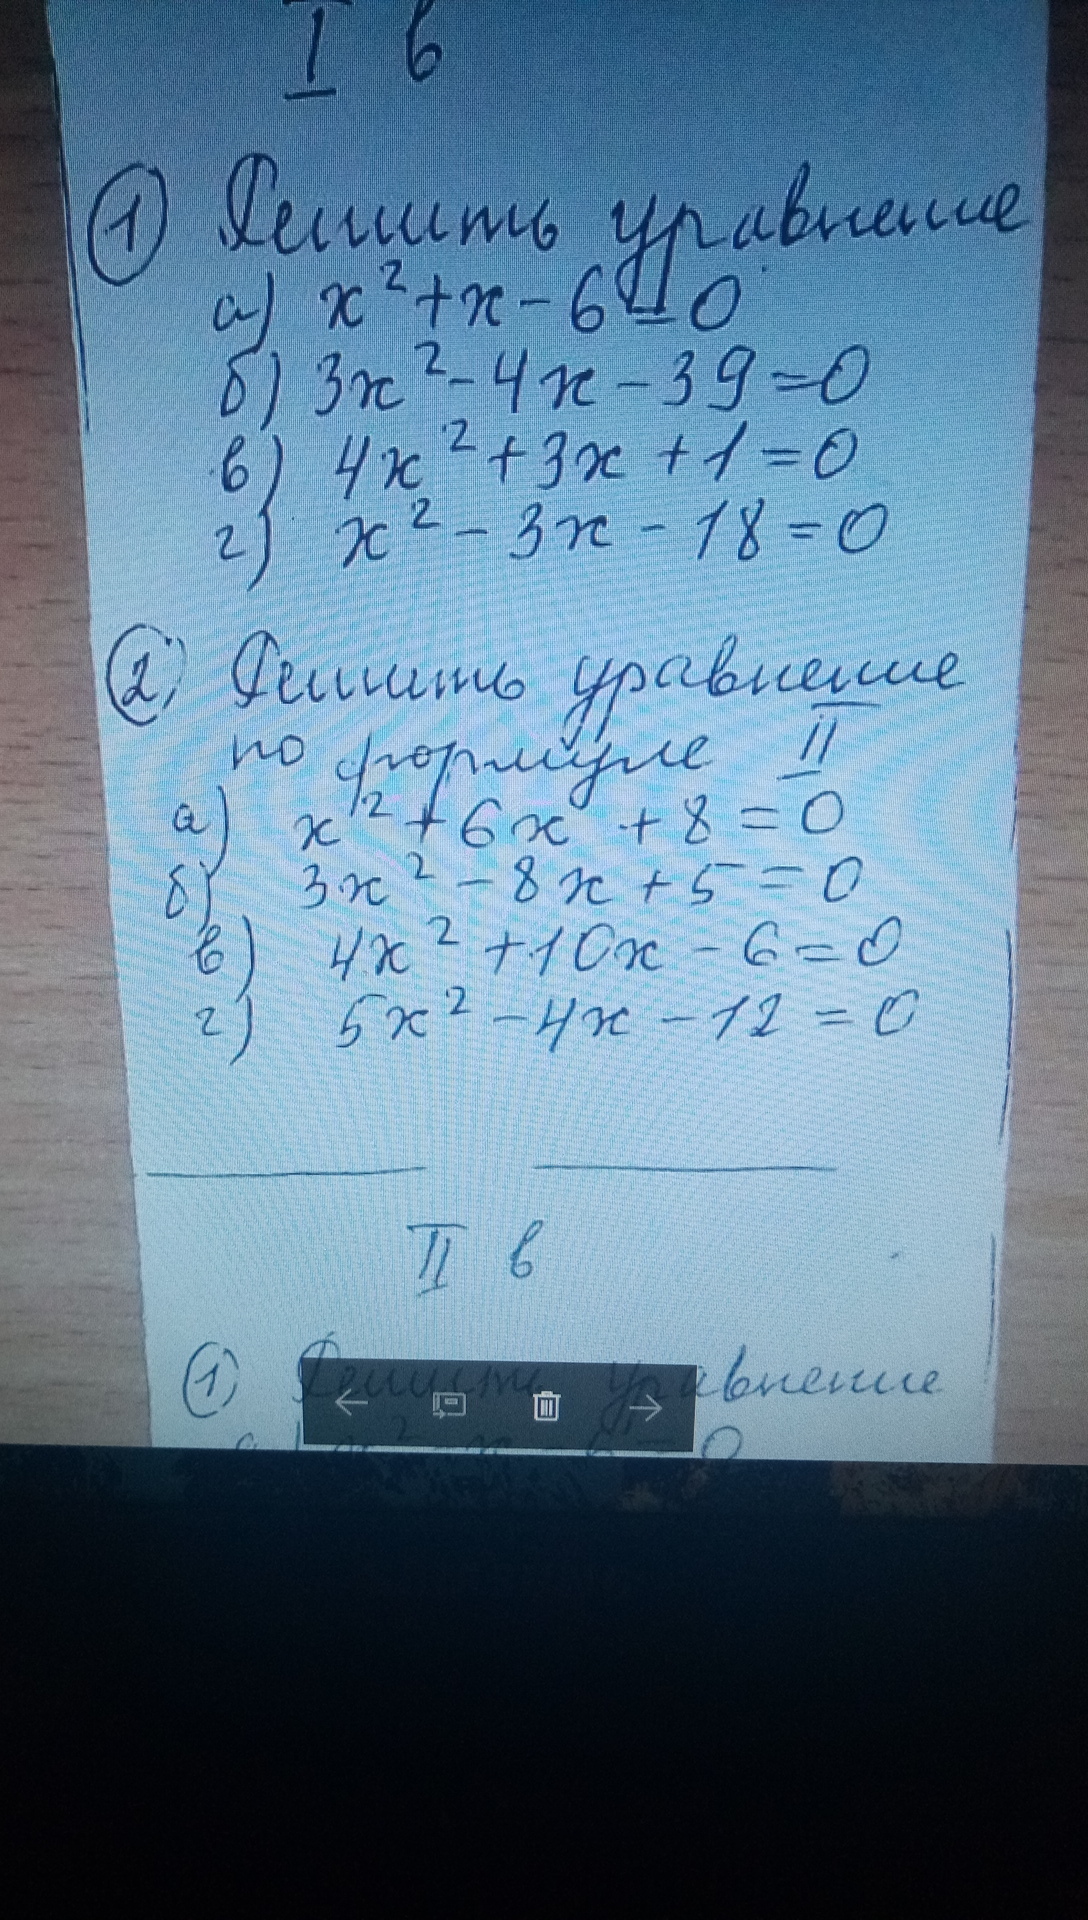 I в
① Решить уравнение
а) x²+x-6=0
б) 3x²-4x-39=0
в) 4x²+3x+1=0
г) x²-3x-18=0
② Решить уравнение
по формуле II
а) x²+6x+8=0
б) 3x²-8x+5=0
в) 4x²+10x-6=0
г) 5x²-4x-12=0
II в
① Решить уравнение